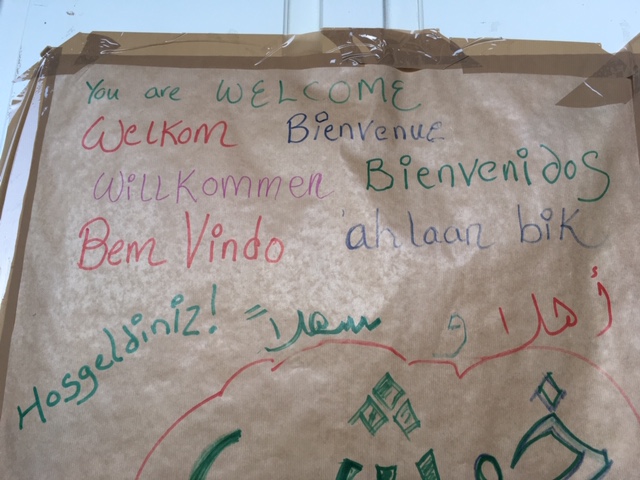 You are WELCOME
Welkom Bienvenue
Willkommen Bienvenidos
Bem Vindo 'ahlaan bik
Hosgeldiniz!
أهلا و سهلا